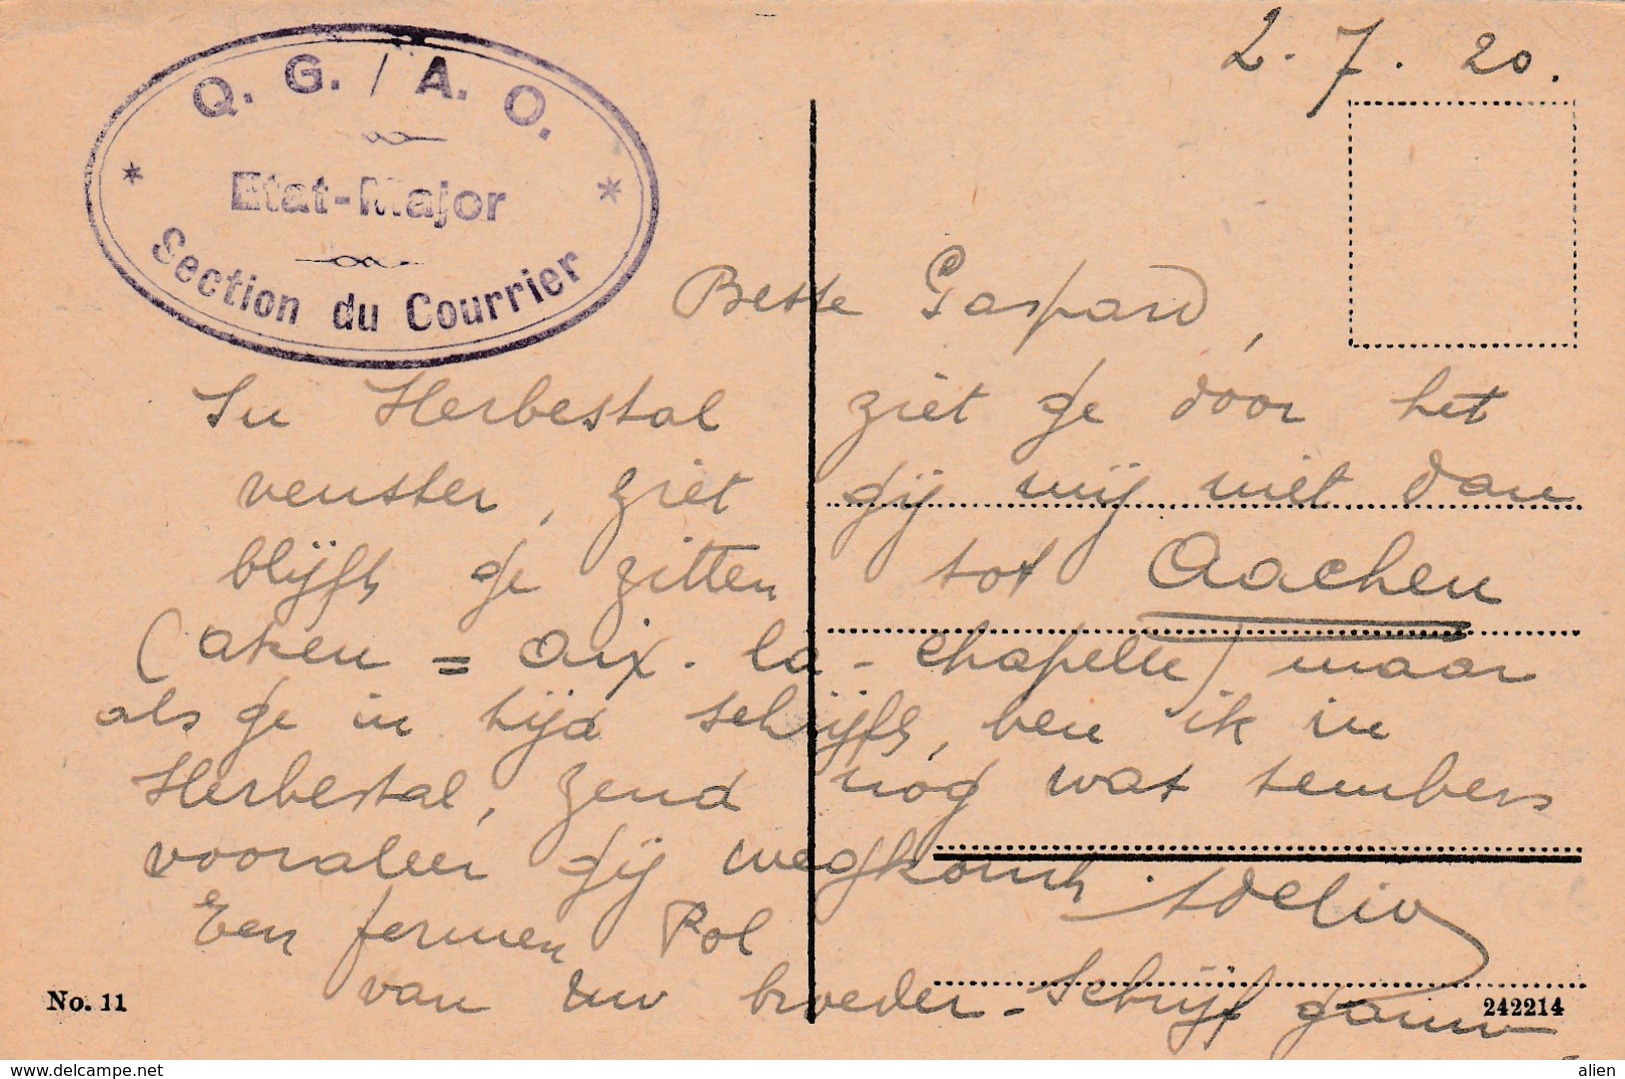 Q. G. / A. O.
Etat-Major
Section du Courrier
2. 7. 20.
Beste Gaspard,
In Herbestal ziet ge door het
venster, ziet gij mij niet dan
blijft ge zitten tot Aachen
(aken = Aix-la-chapelle) maar
als ge in tijd schrijft, ben ik in
Herbestal, zend nog wat tembers
vooraleer gij wegkomt.
Een fermen Pol
van uw broeder - Schrijf gauw
No. 11
242214
delcampe.net
alien